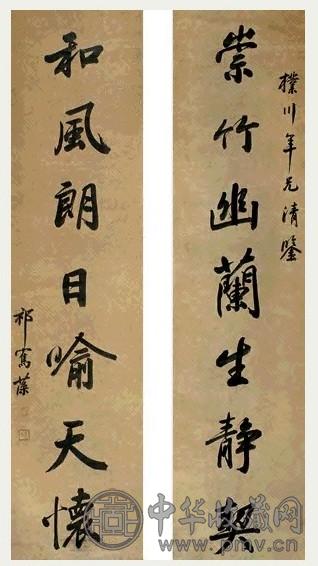 樸川年兄清鑒
崇竹幽蘭生靜契
和風朗日喻天懷
祁寯藻
中华收藏网
www.pmv.cn